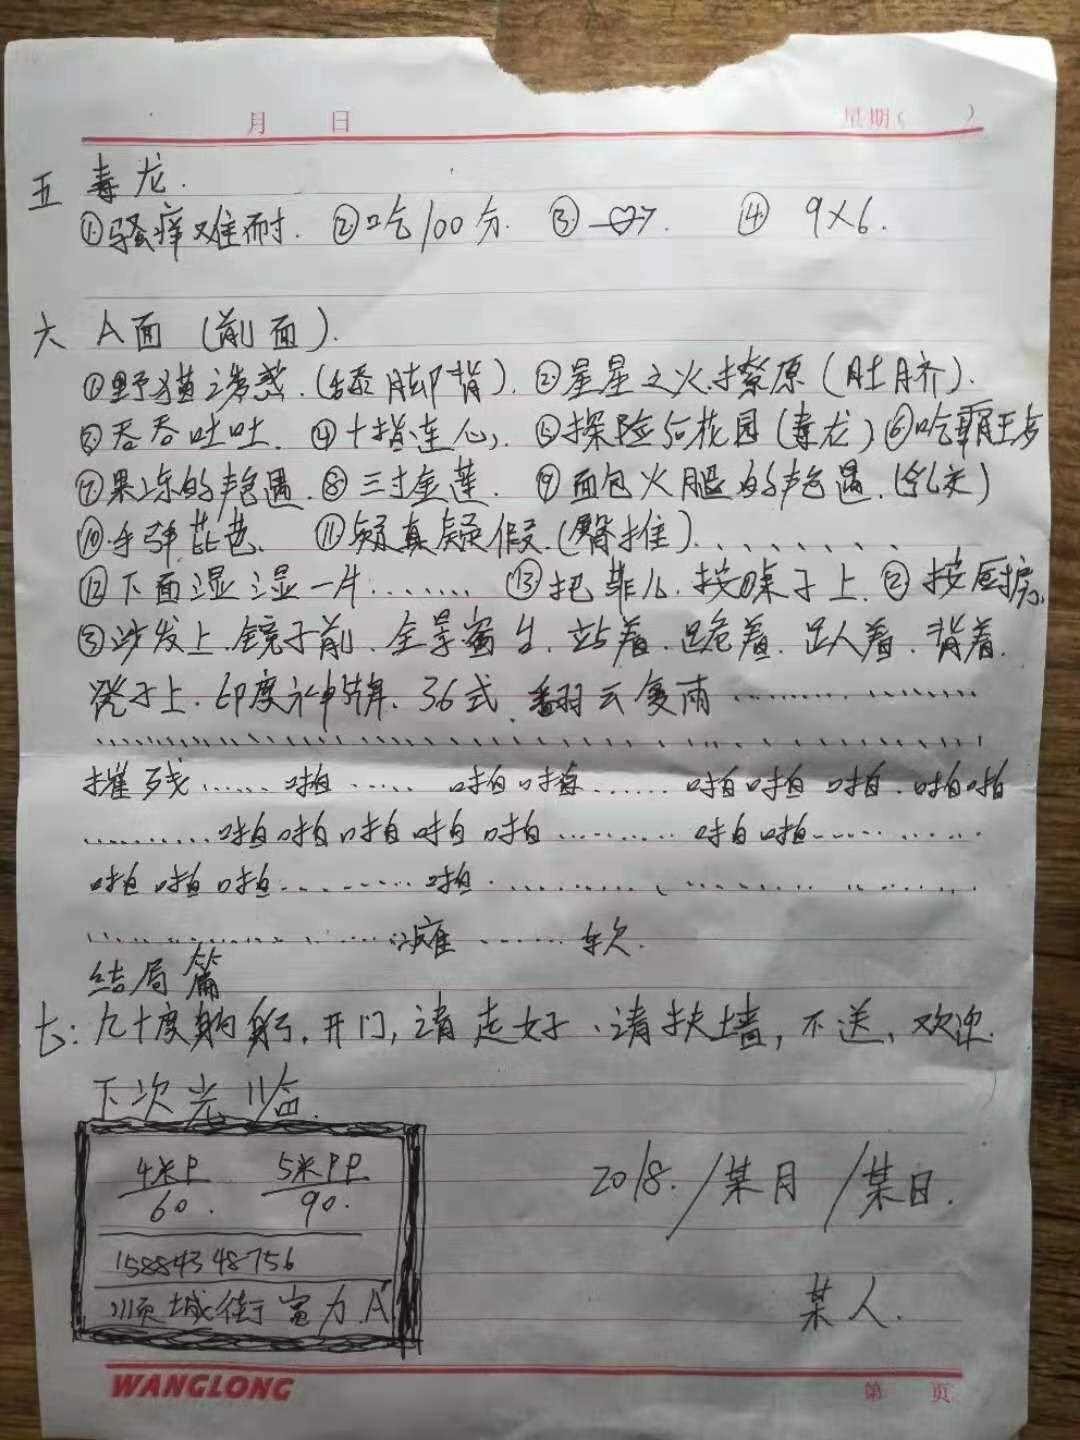 月 日 星期( )
五 毒龙.
①骚痒难耐. ②吃100分. ③ ④ 9×6.
六 A面 (前面).
①野猫诱惑.(舔脚背). ②星星之火.撩原(肚脐).
③吞吞吐吐. ④十指连心, ⑤探险后花园(毒龙) ⑥吃霸王
⑦果冻的艳遇. ⑧三寸金莲. ⑨面包火腿的艳遇.(乳交)
⑩手弹芘芭. ⑪疑真疑假.(臀推).、、、、、、、
⑫下面湿湿一片....... ⑬把菲儿.按桌子上. ② 按厨房.
③沙发上.镜子前.全景窗台.站着.跪着.趴着.背着.
凳子上.印度神牌.36式.翻云复雨...........
摧残...... 啪..... 啪啪...... 啪啪啪.啪啪
.........啪啪啪啪啪.......... 啪啪..........
啪啪啪......... 啪...................
.............瘫......软.
结局篇
七: 九十度鞠躬.开门,请走好、请扶墙,不送,欢迎.
下次光临.
4米P 5米PP
60. 90.
15884348756
顺城街富力A
2018. /某月 /某日.
某人.
WANGLONG
第 页